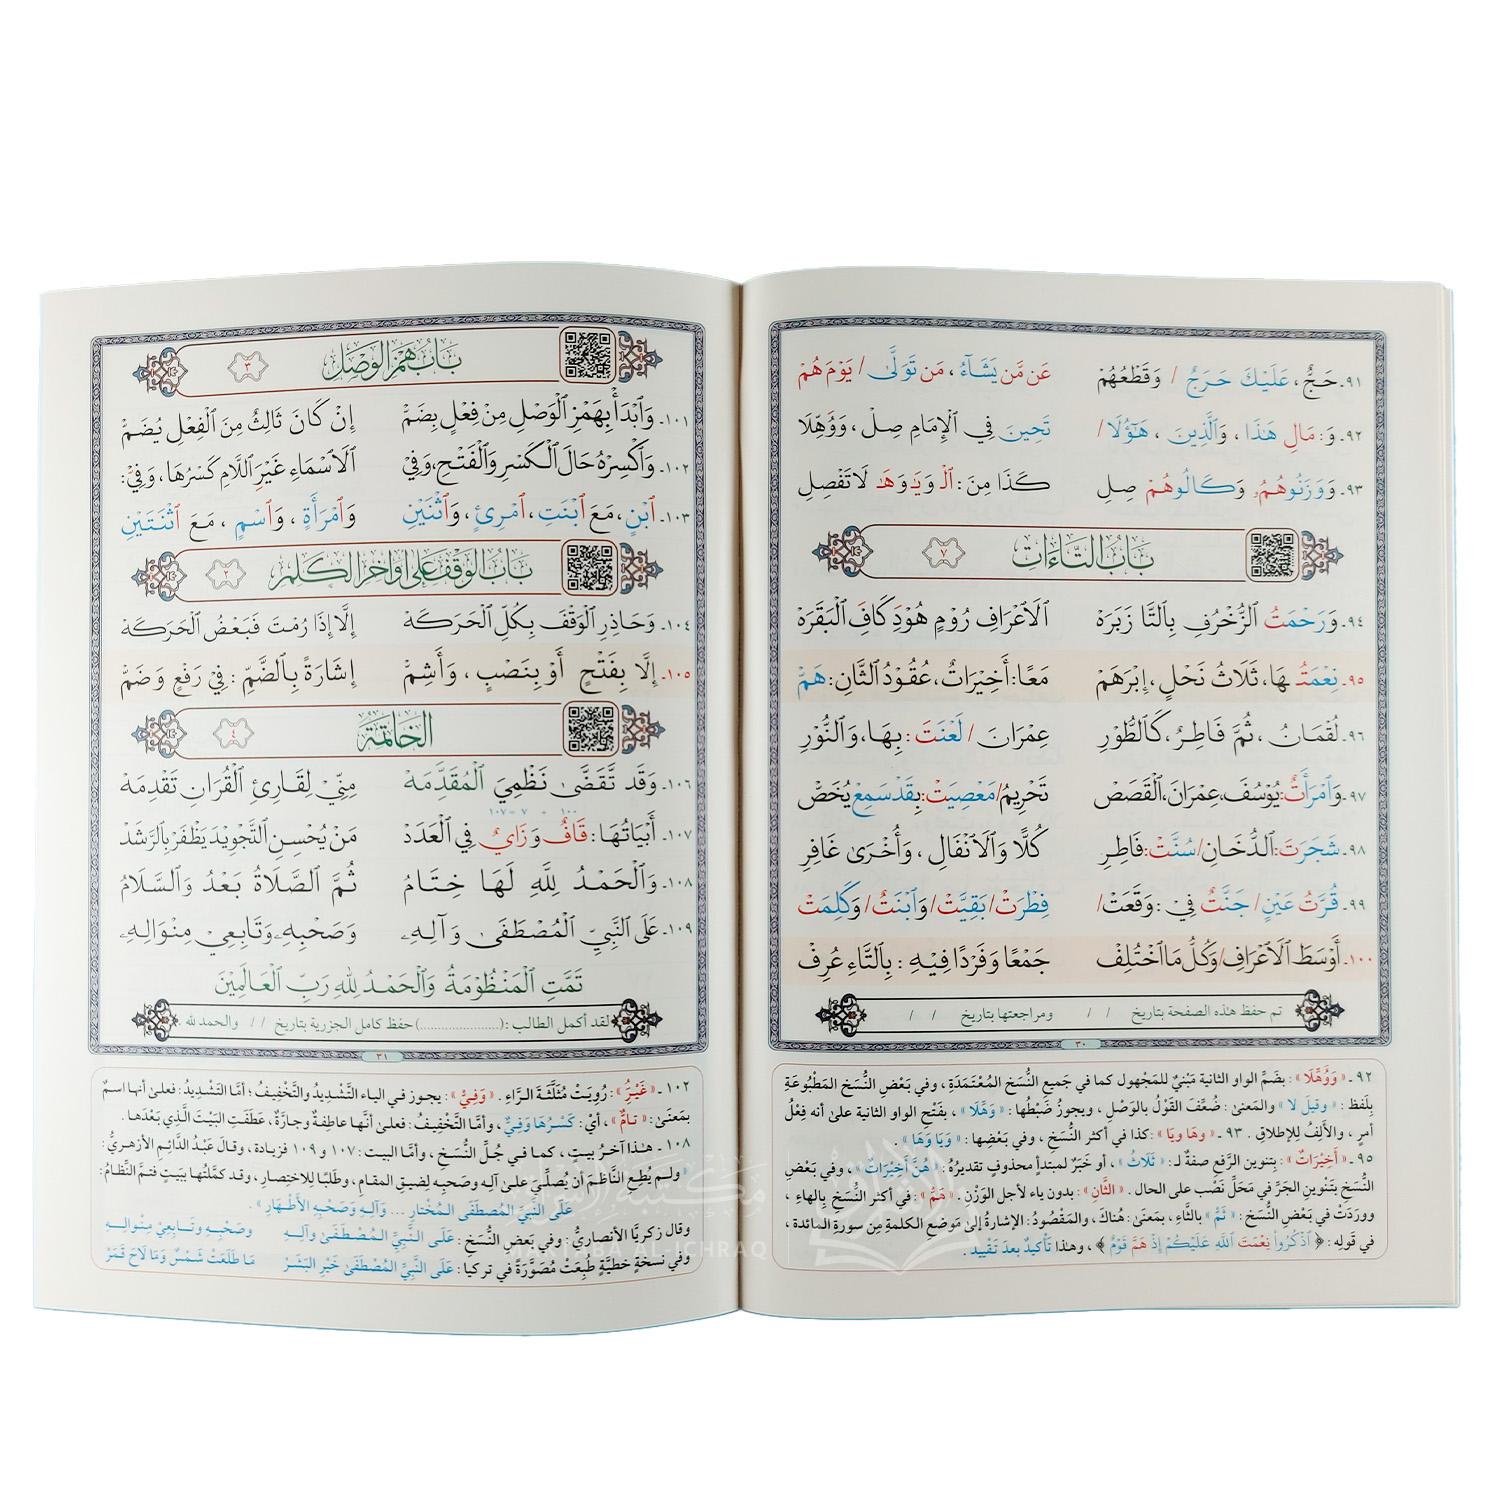 ٩١ـ حَجٌّ، عَلَيْكَ حَرَجٌ / وَقَطْعُهُمْ عَن مَّن يَشَآءُ، مَن تَوَلَّىٰ / يَوْمَ هُمْ
٩٢ـ وَ: مَالِ هَٰذَا، وَالَّذِينَ، هَٰٓؤُلَا/ تَحِينَ فِي الْإِمَامِ صِلْ، وَوُهِّلَا
٩٣ـ وَوَزَنُوهُمُ وَكَالُوهُمْ صِلِ كَذَا مِنَ: الْ وَيَا وَهَا لَا تَفْصِلِ
بَابُ التَّاءَاتِ
٧
٩٤ـ وَرَحْمَتُ الزُّخْرُفِ بِالتَّا زَبَرَهْ الَاعْرَافِ رُومٍ هُودِ كَافَ الْبَقَرَهْ
٩٥ـ نِعْمَتُهَا، ثَلَاثُ نَحْلٍ، إِبْرَهَمْ مَعًا: أَخِيرَاتٌ، عُقُودُ الثَّانِ: هَمّْ
٩٦ـ لُقْمَانُ، ثُمَّ فَاطِرٌ، كَالطُّورِ عِمْرَانَ / لَعْنَتَ: بِهَا، وَالنُّورِ
٩٧ـ وَامْرَأَتٌ: يُوسُفَ، عِمْرَانَ، الْقَصَصْ تَحْرِيمُ/ مَعْصِيَتْ: بِقَدْ سَمِعْ يُخَصّْ
٩٨ـ شَجَرَتَ: الدُّخَانِ/ سُنَّتْ: فَاطِرِ كُلًّا وَالَانْفَالِ، وَأُخْرَىٰ غَافِرِ
٩٩ـ قُرَّتُ عَيْنٍ/ جَنَّتٌ فِي: وَقَعَتْ/ فِطْرَتْ/ بَقِيَّتْ/ وَابْنَتٌ/ وَكَلِمَتْ
١٠٠ـ أَوْسَطَ الَاعْرَافِ/ وَكُلُّ مَا اخْتُلِفْ جَمْعًا وَفَرْدًا فِيهِ: بِالتَّاءِ عُرِفْ
تم حفظ هذه الصفحة بتاريخ / / ومراجعتها بتاريخ / /
٣٠
٩٢ ـ «وَوُهِّلَا»: بضَمِّ الواو الثانية مَبْنيٌّ للمَجْهول كما في جَميع النُّسَخ المُعْتَمَدَةِ، وفي بَعْضِ النُّسَخ المَطْبُوعَةِ
بِلَفظ: «وقيل لا» والمَعنىٰ: ضُعَّفَ القَوْلُ بالوَصْلِ، ويجوزُ ضَبْطُها: «وَهِّلَا»، بفَتْحِ الواو الثانية علىٰ أنه فِعْلُ
أمرٍ، والألِفُ لِلإطلاقِ. ٩٣ ـ «وها ويا»: كذا في أكثر النُّسَخ، وفي بَعْضِها: «وَيَا وَهَا».
٩٥ ـ «أَخِيرَاتٌ»: بتنوينِ الرَّفعِ صفةٌ لـ: «ثَلَاثُ»، أو خَبَرٌ لمبتدأ محذوفٍ تقديرُهُ: «هُنَّ أَخِيرَاتٌ»، وفي بَعْضِ
النُّسَخ بتَنْوينِ الجَرِّ في مَحَلِّ نَصْبٍ على الحال. «الثَّانِ»: بدون ياء لأجل الوَزْن. «هَمّْ»: في أكثر النُّسَخ بالهاءِ،
ووردَتْ في بَعْضِ النُّسَخ: «ثَمَّ» بالثَّاءِ، بمَعنىٰ: هُناكَ، والمَقْصُودُ: الإشارةُ إلىٰ مَوضِعِ الكلمةِ مِن سورةِ المائدة،
في قَولِه: ﴿اذْكُرُوا نِعْمَتَ اللَّهِ عَلَيْكُمْ إِذْ هَمَّ قَوْمٌ﴾، وهذا تأكيدٌ بعدَ تَقْييد.
بَابُ هَمْزِ الْوَصْلِ
٣
١٠١ـ وَابْدَأْ بِهَمْزِ الْوَصْلِ مِنْ فِعْلٍ بِضَمّْ إِنْ كَانَ ثَالِثٌ مِنَ الْفِعْلِ يُضَمّْ
١٠٢ـ وَاكْسِرْهُ حَالَ الْكَسْرِ وَالْفَتْحِ، وَفِيْ الَاسْمَاءِ غَيْرَِ اللَّامِ كَسْرُهَا، وَفِيْ:
١٠٣ـ ابْنٍ، مَعَ ابْنَتِ، امْرِئٍ، وَاثْنَيْنِ وَامْرَأَةٍ، وَاسْمٍ، مَعَ اثْنَتَيْنِ
بَابُ الْوَقْفِ عَلَىٰ أَوَاخِرِ الْكَلِمِ
٢
١٠٤ـ وَحَاذِرِ الْوَقْفَ بِكُلِّ الْحَرَكَهْ إِلَّا إِذَا رُمْتَ فَبَعْضُ الْحَرَكَهْ
١٠٥ـ إِلَّا بِفَتْحٍ أَوْ بِنَصْبٍ، وَأَشِمّْ إِشَارَةً بِالضَّمِّ: فِيْ رَفْعٍ وَضَمّْ
الْخَاتِمَةُ
٤
١٠٦ـ وَقَد تَّقَضَّىٰ نَظْمِيَ الْمُقَدِّمَهْ مِنِّي لِقَارِئِ الْقُرَانِ تَقْدِمَهْ
١٠٠ + ٧ = ١٠٧
١٠٧ـ أَبْيَاتُهَا: قَافٌ وَزَايٌ فِي الْعَدَدْ مَنْ يُحْسِنِ التَّجْوِيدَ يَظْفَرْ بِالرَّشَدْ
١٠٨ـ وَالْحَمْدُ لِلَّهِ لَهَا خِتَامُ ثُمَّ الصَّلَاةُ بَعْدُ وَالسَّلَامُ
١٠٩ـ عَلَى النَّبِيِّ الْمُصْطَفَىٰ وَآلِهِ وَصَحْبِهِ وَتَابِعِي مِنْوَالِهِ
تَمَّتِ الْمَنْظُومَةُ وَالْحَمْدُ لِلهِ رَبِّ الْعَالَمِيْنَ
لقد أكمل الطالب: (....................) حفظ كامل الجزرية بتاريخ / / والحمد لله.
٣١
١٠٢ ـ «غَيْرَُِ»: رُويَتْ مُثَلَّثَةَ الرَّاءِ. «وَفِيْ»: يجوز في الياء التَّشديدُ والتَّخْفِيفُ؛ أمَّا التَّشديدُ: فعلىٰ أنها اسمٌ
بمَعنىٰ: «تامٌّ»، أيْ: كَسْرُهَا وَفِيٌّ، وأمَّا التَّخْفِيفُ: فعلىٰ أنَّها عاطِفةٌ وجارَّةٌ، عَطَفَتِ البَيْتَ الَّذِي بَعْدَها.
١٠٨ ـ هذا آخرُ بيتٍ، كما في جُلِّ النُّسَخ، وأمَّا البيت: ١٠٧ و١٠٩ فزيادة، وقال عَبْدُ الدَّائِمِ الأزهريُّ:
«ولم يُطِعِ النَّاظِمَ أن يُصلِّيَ علىٰ آلِه وصَحبِه لِضِيقِ المقامِ، وطَلَبًا للاختِصارِ، وقد كمَّلتُها ببَيتٍ فتمَّ النِّظامُ:
عَلَى النَّبِيِّ المُصطَفَى المُختارِ ... وَآلِهِ وَصَحْبِهِ الأَطْهارِ».
وقال زكريَّا الأنصاريُّ: وفي بَعضِ النُّسَخِ: عَلَى النَّبِيِّ المُصْطَفَىٰ وَآلِهِ وَصَحْبِهِ وَتَابِعِي مِنْوَالِهِ
وفي نسخةٍ خطيَّةٍ طُبِعَتْ مُصَوَّرَةً في تركيا: عَلَى النَّبِيِّ المُصْطَفَىٰ خَيْرِ البَشَرْ مَا طَلَعَتْ شَمْسٌ وَمَا لَاحَ قَمَرْ
مكتبة الإشراق
MAKTABA AL-ICHRAQ